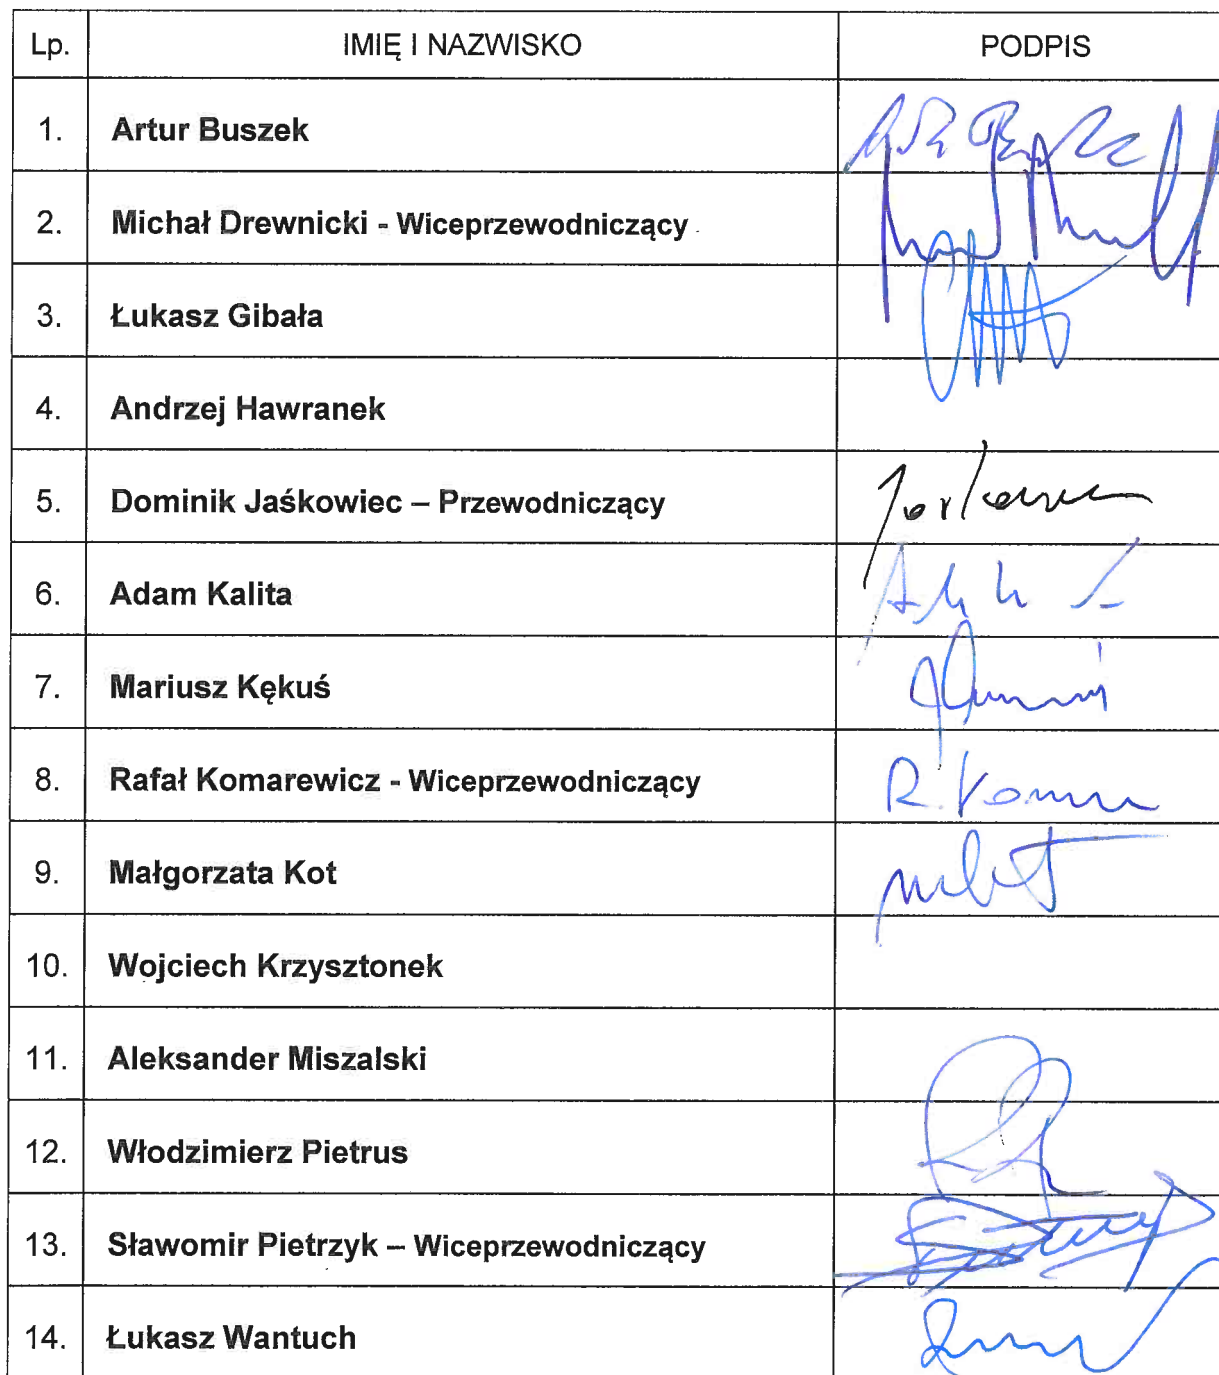 Lp. IMIĘ I NAZWISKO PODPIS
1. Artur Buszek
2. Michał Drewnicki - Wiceprzewodniczący
3. Łukasz Gibała
4. Andrzej Hawranek
5. Dominik Jaśkowiec – Przewodniczący
6. Adam Kalita
7. Mariusz Kękuś
8. Rafał Komarewicz - Wiceprzewodniczący
9. Małgorzata Kot
10. Wojciech Krzysztonek
11. Aleksander Miszalski
12. Włodzimierz Pietrus
13. Sławomir Pietrzyk – Wiceprzewodniczący
14. Łukasz Wantuch